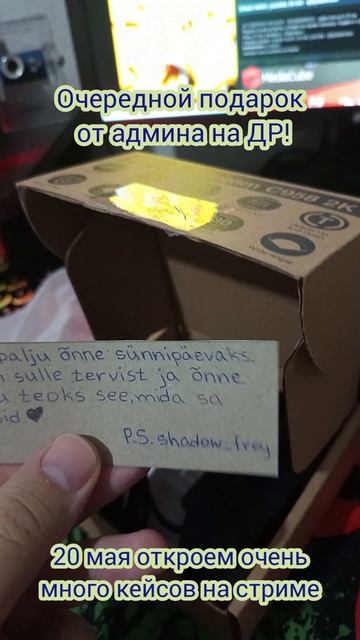 Очередной подарок
от админа на ДР!
C958 2K
Wide Angle
palju õnne sünnipäevaks
sulle tervist ja õnne
teoks see, mida sa
P.S. shadow_frey
20 мая откроем очень
много кейсов на стриме